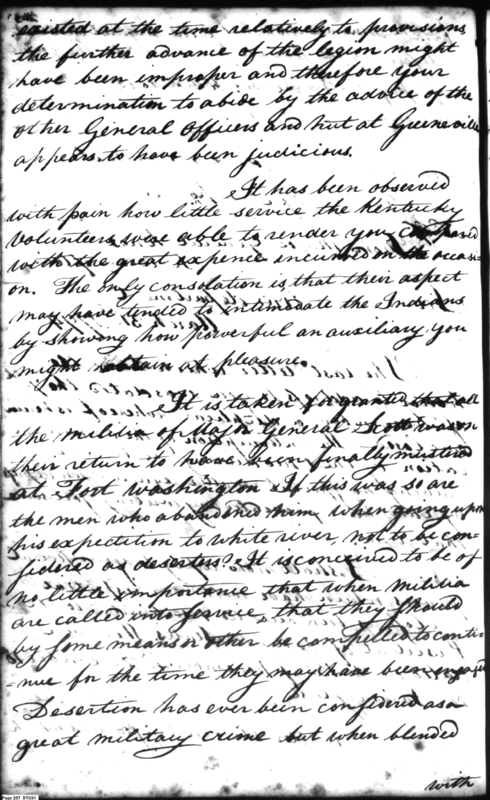 existed at the time relatively to provisions
the further advance of the legion might
have been improper and therefore your
determination to abide by the advice of the
other General Officers and hut at Greeneville
appears to have been judicious.
It has been observed
with pain how little service the Kentucky
Volunteers were able to render you compared
with the great expence incurred on the occasi-
on. The only consolation is that their aspect
may have tended to intimodate the Indians
by showing how powerful an auxiliary you
might obtain at pleasure.
It is taken for granted that all
the militia of Major General Scott was on
their return to have been finally mustered
at Fort Washington If this was so are
the men who abandoned him when going upon
his expectition to white river, not to be con-
sidered as deserters? It is conceived to be of
no little importance that when militia
are called into service, that they should
by some means or other be compelled to conti-
-nue for the time they may have been engaged
Desertion has ever been considered as a
great military crime but when blended
with
Page 257 DTC01